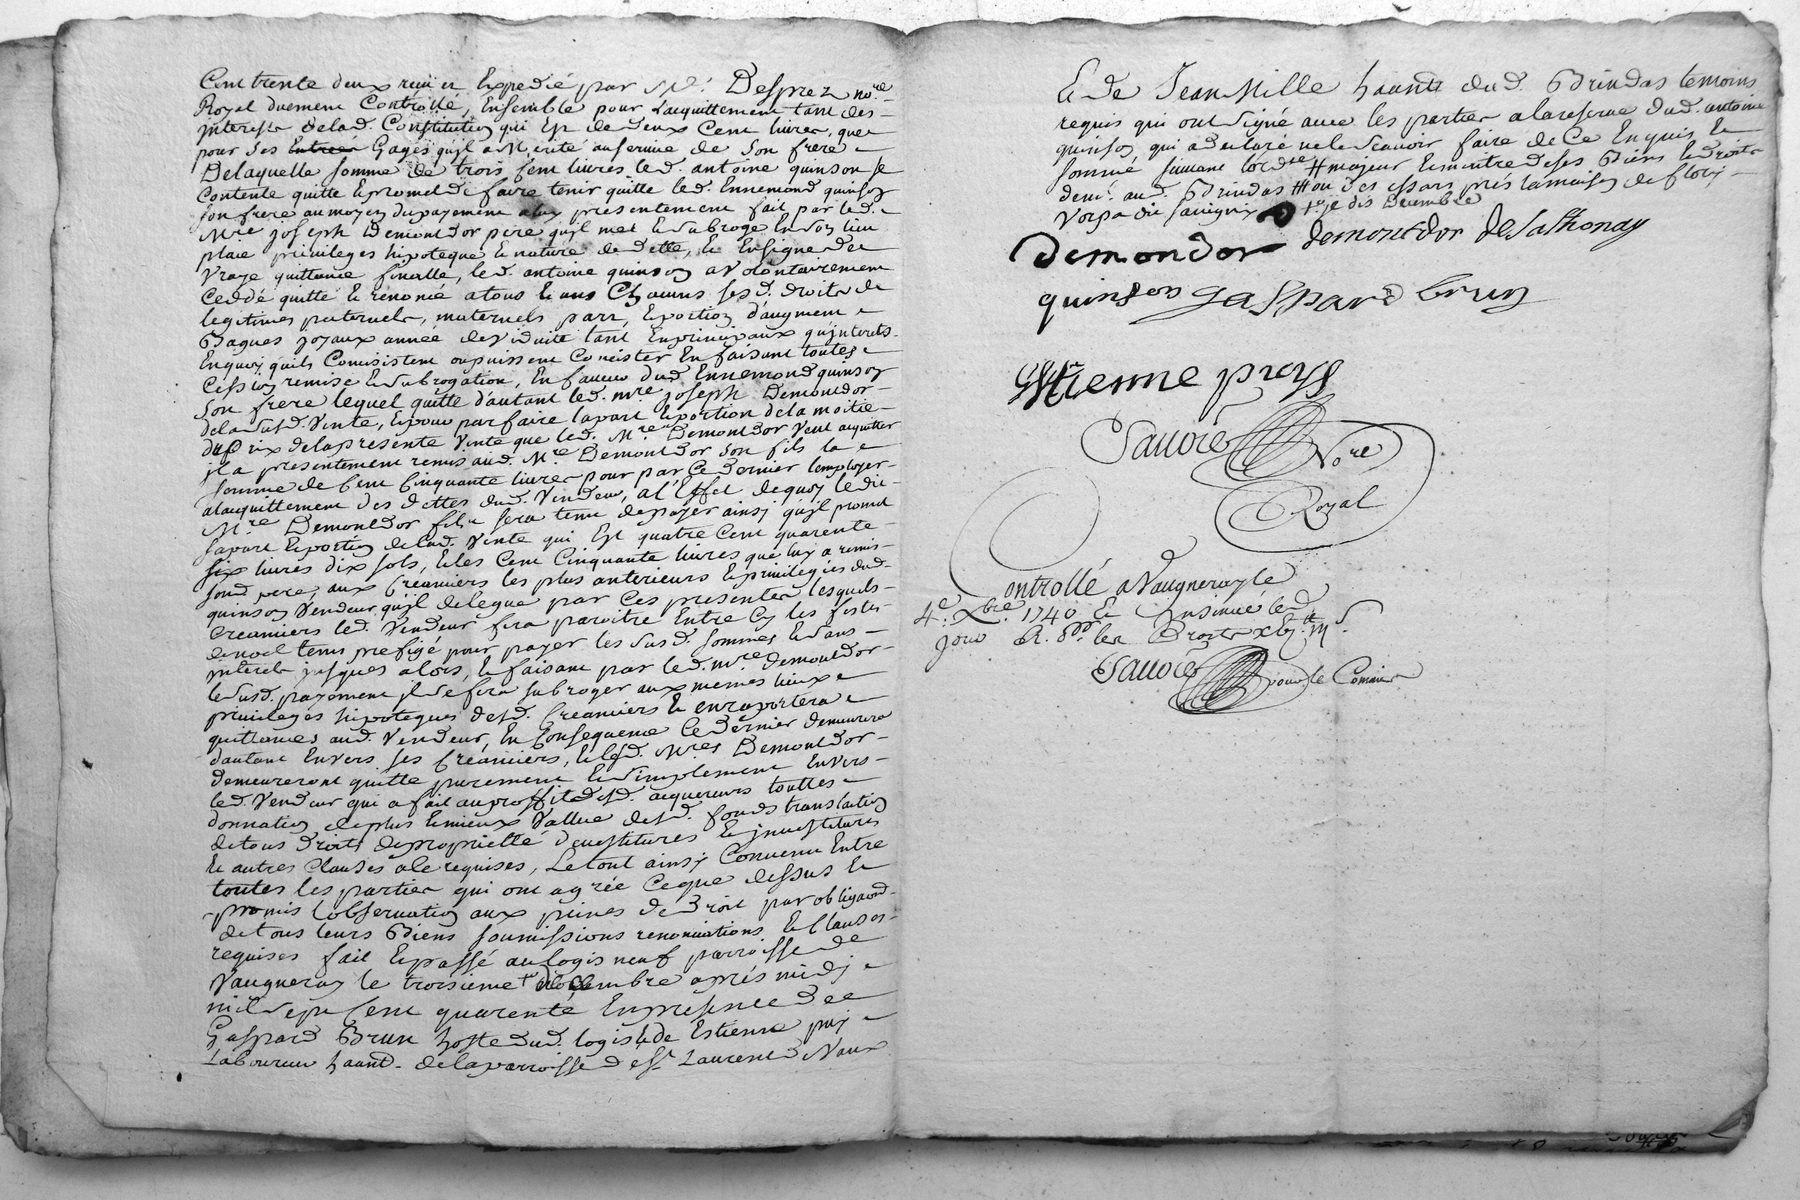 Cent trente deux reçu et Expedié par Me. Desprez nore.
Royal duement Controllé, Ensemble pour Lacquittement tant des
interests delad. Constitution qui Est de deux Cent livres, que
pour ses Entree Gages qu'il a Merité au service de son frere
De laquelle somme de trois Cent livres led. antoine quinson se
Contente quitte & promet de faire tenir quitte led. Ennemond quinson
son frere au moyen du payement a luy presentement fait par led.
Mre joseph Demontdor pere qu'il met & subroge En son lieu
place privileges hipoteque & nature de dette, & En signe de
Vraye quittance finalle, led. antoine quinson a Volontairement
Ceddé quitté & renoncé a tous & uns Chacuns sesd. droits de
legitimes paternels, maternels part, & portion d'augment
Bagues joyaux année de viduité tant En principaux qu'interets
En quoy quils Consistent ou puissent Concister En faisant toutes
Cession remise & subrogation, En faveur dud. Ennemond quinson
son frere lequel quitte d'autant led. mre joseph Demontdor
de la susd. Vente, & pour parfaire la part & portion de la moitié
du prix de la presente Vente que led. Mre Demontdor veut acquitter
il a presentement remis aud. Mre. Demontdor son fils la
somme de Cent Cinquante livres pour par Ce dernier l'employer
a lacquittement des dettes dud. Vendeur, a l'Effet de quoy ledit
Mre Demontdor fils sera tenu de payer ainsy qu'il promet
sa part & portion de lad. Vente qui Est quatre Cent quarente
six livres dix sols, & les Cent Cinquante livres que luy a remis
sond. pere, aux Creanciers les plus anterieurs & privilegiés dud.
quinson Vendeur qu'il delegue par Ces presentes lesquels
Creanciers led. Vendeur fera paroitre Entre Cy les festes
de noel tems prefigé pour payer les susd. sommes & sans
interets jusques alors, & faisant par led. mre Demontdor
le susd. payement il se fera subroger aux memes lieux
privileges hipoteques desd. Creanciers & enraportera
quittances aud. Vendeur, En Consequence Ce dernier demeurera
d'autant Envers ses Creanciers, & lesd. Mres Demontdor
Demeureront quitte purement & simplement Envers
led. Vendeur qui a fait au proffit desd. acquereurs touttes
donnation de plus & mieux Vallue desd. fonds translation
de tous droits de proprietté devestitures & jnvestitures
& autres Clauses a le requises, Le tout ainsy Convenu Entre
toutes les parties qui ont agrée Ce que dessus &
promis l'observation aux peines de Droit par obligaond.
de tous leurs Biens soumissions renonciations & Clauses
requises fait & passé au logis neuf parroisse de
Vaugneray le troisieme decembre aprés midy
mil sept Cent quarente En presence de
Gaspard Brun hoste dud. logis & de Estienne puy
Laboureur haant. de la parroisse de St Laurent de Vaux
& de Jean Mille haant. dud. Brindas temoins
requis qui ont signé avec les parties a la reserve dud. antoine
quinson qui a declaré ne le scavoir faire de Ce Enquis &
sommé suivant lordce # majeur & maitre de ses Biens & droits
demt. aud. Brindas ## ou des essars prés la maison de
Demondor demontdor de Sathonay
quinson gaspard brun
Estienne pœys
Sauoré Nore
Royal
Controllé a Vaugneray le
4e. Xbre. 1740 & Insinué led.
jour
Sauoré pour le Commis